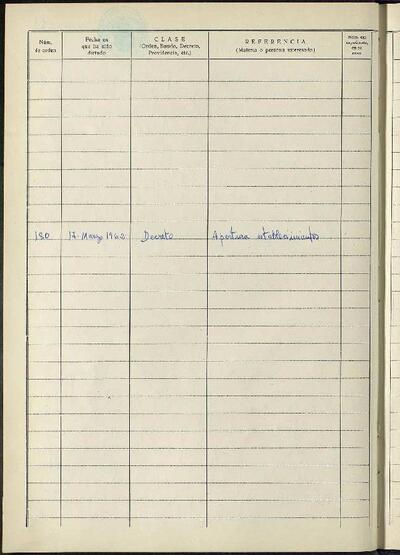 Núm.
de orden
Fecha en
que ha sido
dictado
CLASE
(Orden, Bando, Decreto,
Providencia, etc.)
REFERENCIA
(Materia o persona interesada)
180 17 Marzo 1962 Decreto Apertura establecimientos